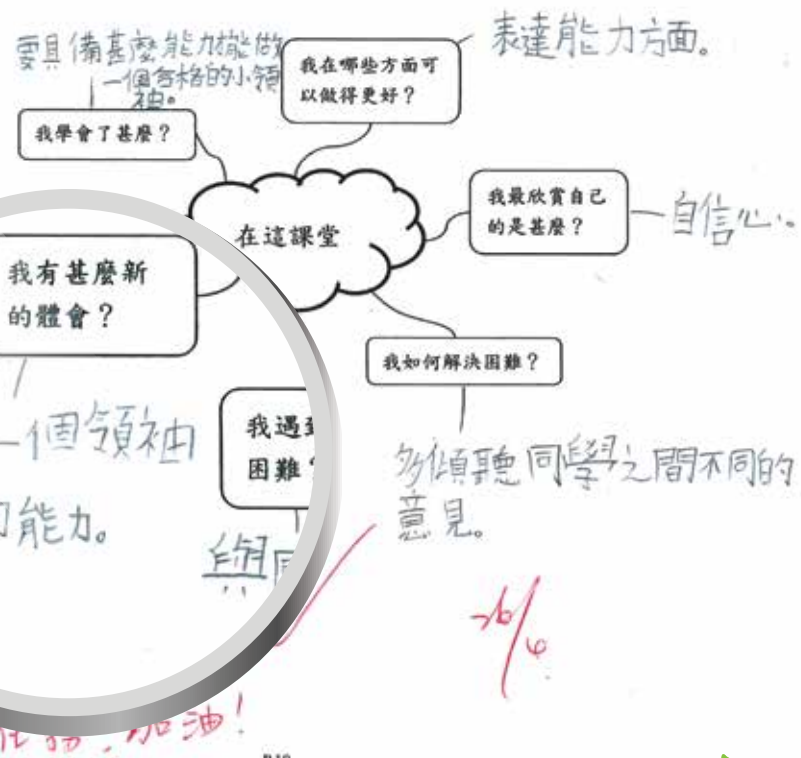 要具備甚麼能力才能做
一個合格的小領
袖。
我學會了甚麼？
我在哪些方面可
以做得更好？
表達能力方面。
在這課堂
我最欣賞自己
的是甚麼？
自信心。
我有甚麼新
的體會？
一個領袖
能力。
我遇到
困難
與同
我如何解決困難？
多傾聽同學之間不同的
意見。
26/6
任務，加油！